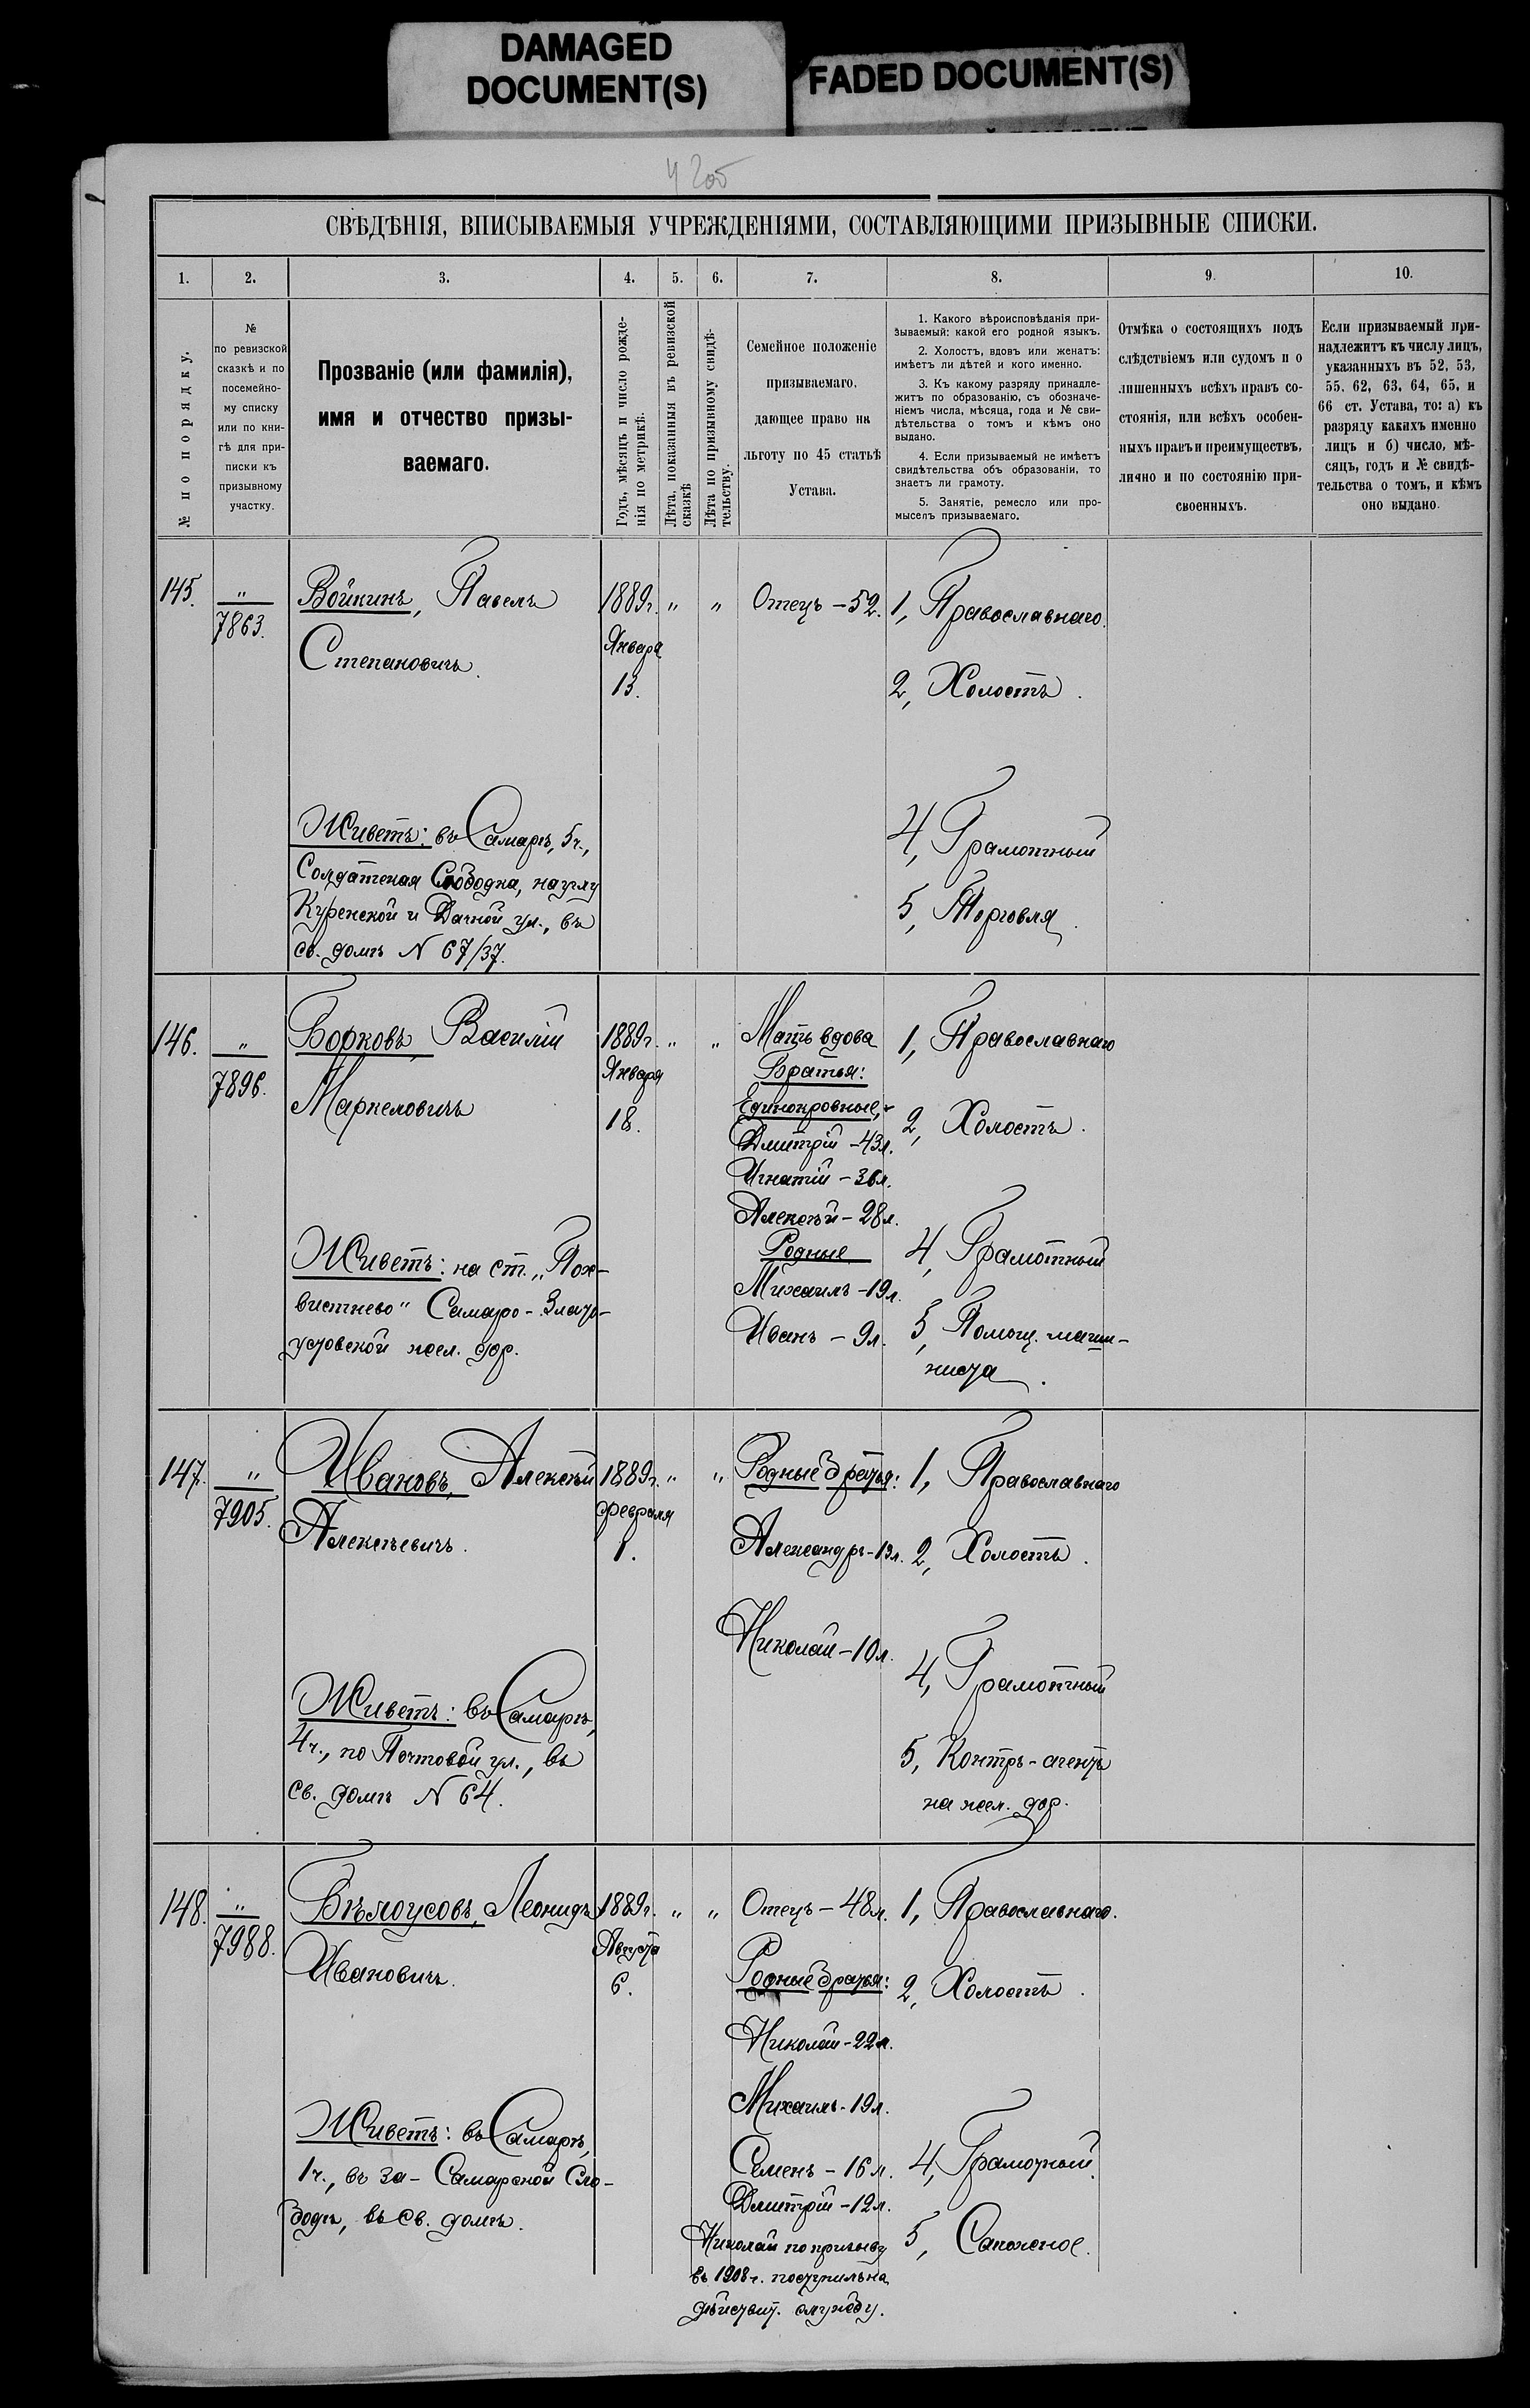 DAMAGED
DOCUMENT(S)
FADED DOCUMENT(S)
СВѢДѢНІЯ, ВПИСЫВАЕМЫЯ УЧРЕЖДЕНІЯМИ, СОСТАВЛЯЮЩИМИ ПРИЗЫВНЫЕ СПИСКИ.
1. 2. 3. 4. 5. 6. 7. 8. 9. 10.
№ по порядку.
№
по ревизской
сказкѣ и по
посемейно-
му списку
или по кни-
гѣ для при-
писки къ
призывному
участку.
Прозваніе (или фамилія),
имя и отчество призы-
ваемаго.
Годъ, мѣсяцъ и число рожде-
нія по метрикѣ.
Лѣта, показанныя въ ревизской
сказкѣ
Лѣта по призывному свидѣ-
тельству.
Семейное положеніе
призываемаго,
дающее право на
льготу по 45 статьѣ
Устава.
1. Какого вѣроисповѣданія при-
зываемый: какой его родной языкъ.
2. Холостъ, вдовъ или женатъ:
имѣетъ ли дѣтей и кого именно.
3. Къ какому разряду принадле-
житъ по образованію, съ обозначе-
ніемъ числа, мѣсяца, года и № сви-
дѣтельства о томъ и кѣмъ оно
выдано.
4. Если призываемый не имѣетъ
свидѣтельства объ образованіи, то
знаетъ ли грамоту.
5. Занятіе, ремесло или про-
мыселъ призываемаго.
Отмѣка о состоящихъ подъ
слѣдствіемъ или судомъ и о
лишенныхъ всѣхъ правъ со-
стоянія, или всѣхъ особен-
ныхъ правъ и преимуществъ,
лично и по состоянію при-
своенныхъ.
Если призываемый при-
надлежитъ къ числу лицъ,
указанныхъ въ 52, 53,
55, 62, 63, 64, 65, и
66 ст. Устава, то: а) къ
разряду какихъ именно
лицъ и б) число, мѣ-
сяцъ, годъ и № свидѣ-
тельства о томъ, и кѣмъ
оно выдано.
145.
"
7863.
Войкинъ, Павелъ
Степановичъ.
Живетъ: въ Самарѣ, 5ч.,
Солдатская Слободка, на углу
Куренской и Дачной ул., въ
св. домѣ N 67/37.
1889г.
Января
13.
" "
Отецъ – 52.
1, Православнаго.
2, Холостъ.
4, Грамотный
5, Торговля.
146.
"
7896.
Борковъ, Василій
Маркеловичъ
Живетъ: на ст. „Пох-
вистнево" Самаро-Злато-
устовской жел. дор.
1889г.
Января
18.
" "
Мать вдова
Братья:
Единокровные,
Дмитрій – 43л.
Игнатій – 36л.
Алексѣй – 28л.
Родные
Михаилъ – 19л.
Иванъ – 9л.
1, Православнаго
2, Холостъ.
4, Грамотный
5, Помощ. маши-
ниста.
147.
"
7905.
Ивановъ, Алексѣй
Алексѣевичъ.
Живетъ: въ Самарѣ,
4ч., по Почтовой ул., въ
св. домѣ N 64.
1889г.
Февраля
1.
" "
Родные братья:
Александръ – 13л.
Николай – 10л.
1, Православнаго
2, Холостъ.
4, Грамотный
5, Контръ-агентъ
на жел. дор.
148.
"
7988.
Бѣлоусовъ, Леонидъ
Ивановичъ.
Живетъ: въ Самарѣ,
1ч., въ за-Самарской Сло-
бодѣ, въ св. домѣ.
1889г.
Августа
6.
" "
Отецъ – 48л.
Родные братья:
Николай – 22л.
Михаилъ – 19л.
Семенъ – 16л.
Дмитрій – 12л.
Николай по призыву
въ 1908г. поступилъ на
дѣйствит. службу.
1, Православнаго.
2, Холостъ.
4, Грамотный.
5, Сапожное.